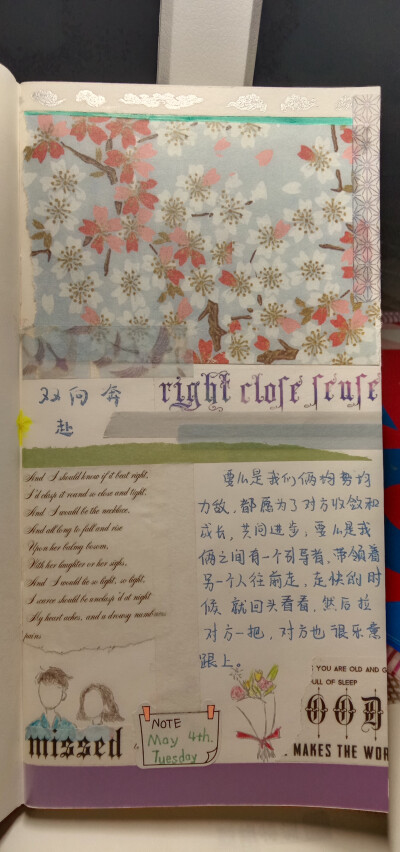 双向奔
赴
right close sense
And I should know if it beat right,
I'd clasp it round so close and tight.
And I would be the necklace,
And all day long to fall and rise
Upon her balmy bosom,
With her laughter or her sighs,
And I would lie so light, so light,
I scarce should be unclasp'd at night
My heart aches, and a drowsy numbness
pains
要么是我们俩均势均
力敌,都愿为了对方收敛和
成长,共同进步,要么是我
俩之间有一个引导者,带领着
另一个人往前走,走快的时
候,就回头看看,然后拉
对方一把,对方也很乐意
跟上。
missed
NOTE
May 4th.
Tuesday
YOU ARE OLD AND G
ULL OF SLEEP
OOD
MAKES THE WOR